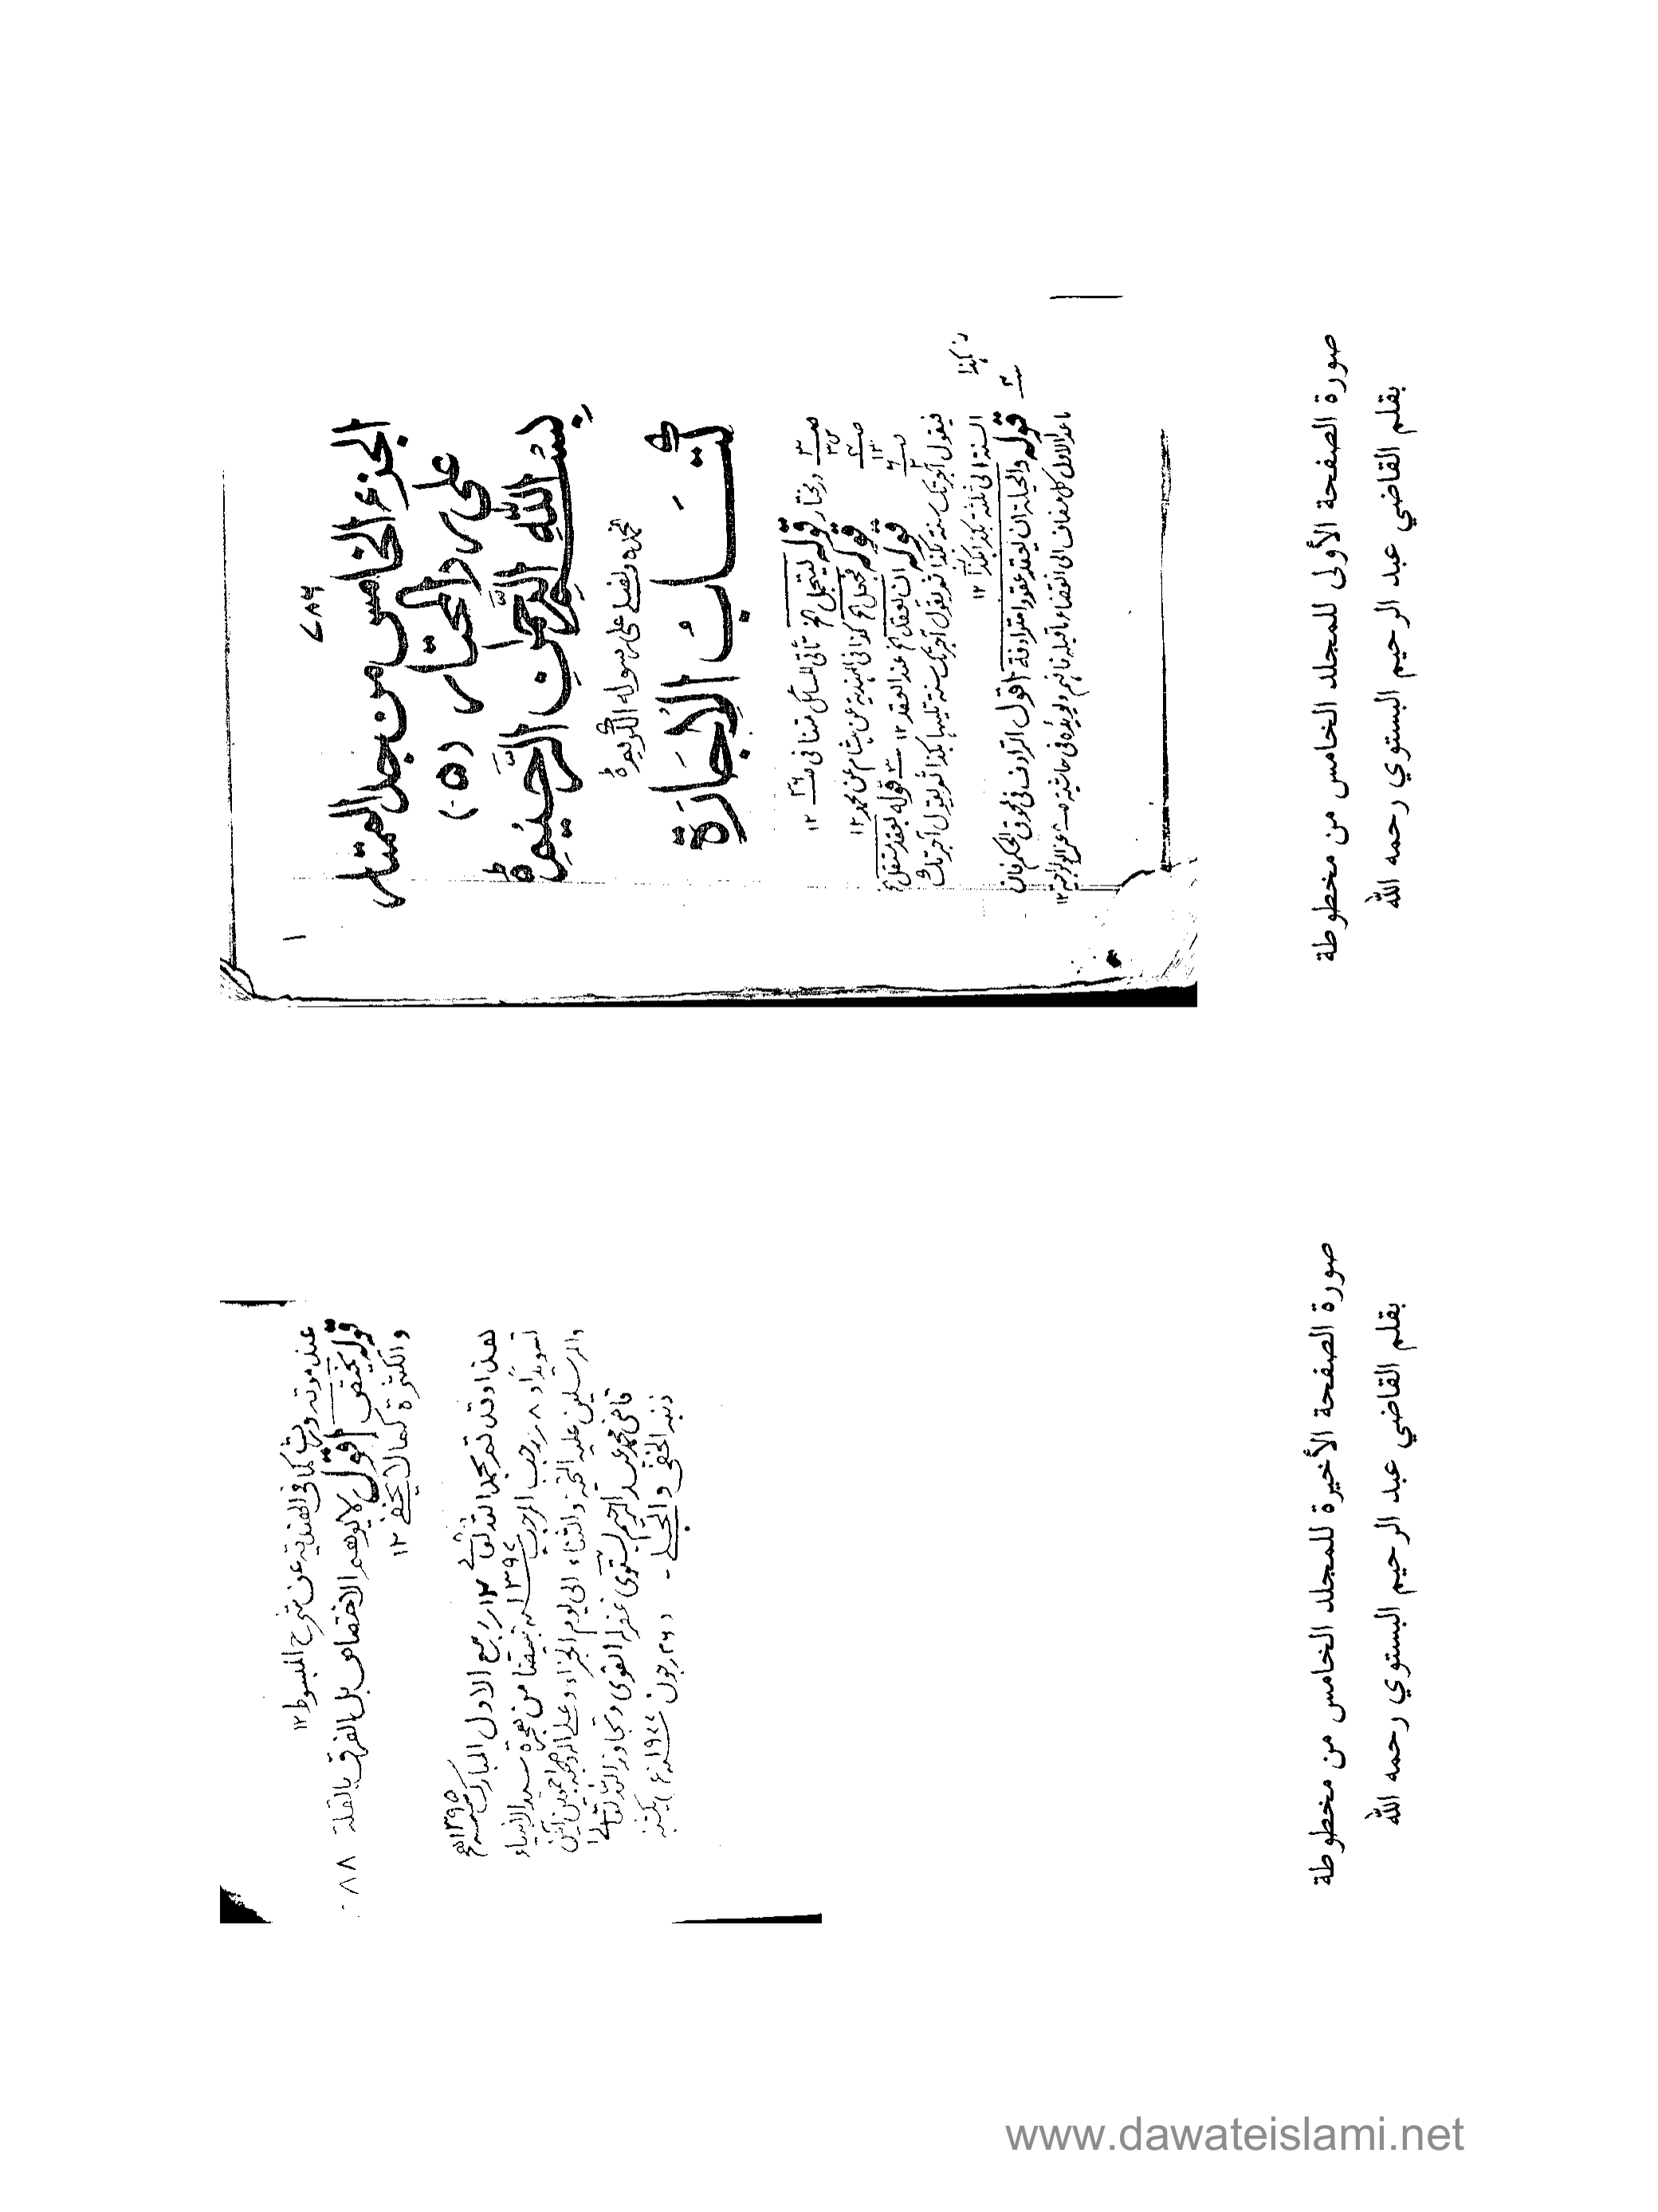 ٧٨٦
١
الجزء الخامس من جد الممتار
على رد المحتار
(٥)
بِسْمِ اللهِ الرَّحْمٰنِ الرَّحِيْمِ
نحمده ونصلى على رسوله الكريم
كتَابُ الإِجَارَة
قوله ليتحل الخ تأتى المسائل متنا فى
قوله الخ كذا فى الهندية عن هشام عن محمد ١٢
قوله ان لعقد الخ عند العقد ١٢ قوله لعقد مستقل الخ
فيقول آجرتك سنة بكذا ثم يقول آجرتك سنة تليها بكذا ثم يقول آجرتك
السنة الى ثلثة بكذا بكذا ١٢
قوله والحيلة ان يعقد عقودا مترادفة اقول الترادف فى الحكم فان
ما عدا الاول كل مضاف الى انقضاء ما قبله فافهم
صورة الصفحة الأولى للمجلد الخامس من مخطوطة
بقلم القاضي عبد الرحيم البستوي رحمه الله
عند موته ورث كما فى الهندية عن شرح المبسوط ١٢
قوله يختص اقول لا يوهم الاختصاص بل الفرق بالقلة
والكثرة كما لا يخفى ١٢
٨٨
هذا وقد تم بحمد الله تعالى ١٢ ربيع الاول المبارك ١٣٩٥ھ
تسويدا و ٨ رجب المرجب ١٣٩٧ھ تبييضا من هجرة سيد الانبياء
والمرسلين عليه التحية والثناء الى يوم الجزاء وعلى آله وصحبه اجمعين آمين
قاضى محمد عبد الرحيم البستوى غفر له القوى وتجاوز الله تعالى
ذنبه الخفى والجلى - (٢٦ جون ١٩٧٧ء) يكشنبه
صورة الصفحة الأخيرة للمجلد الخامس من مخطوطة
بقلم القاضي عبد الرحيم البستوي رحمه الله
www.dawateislami.net